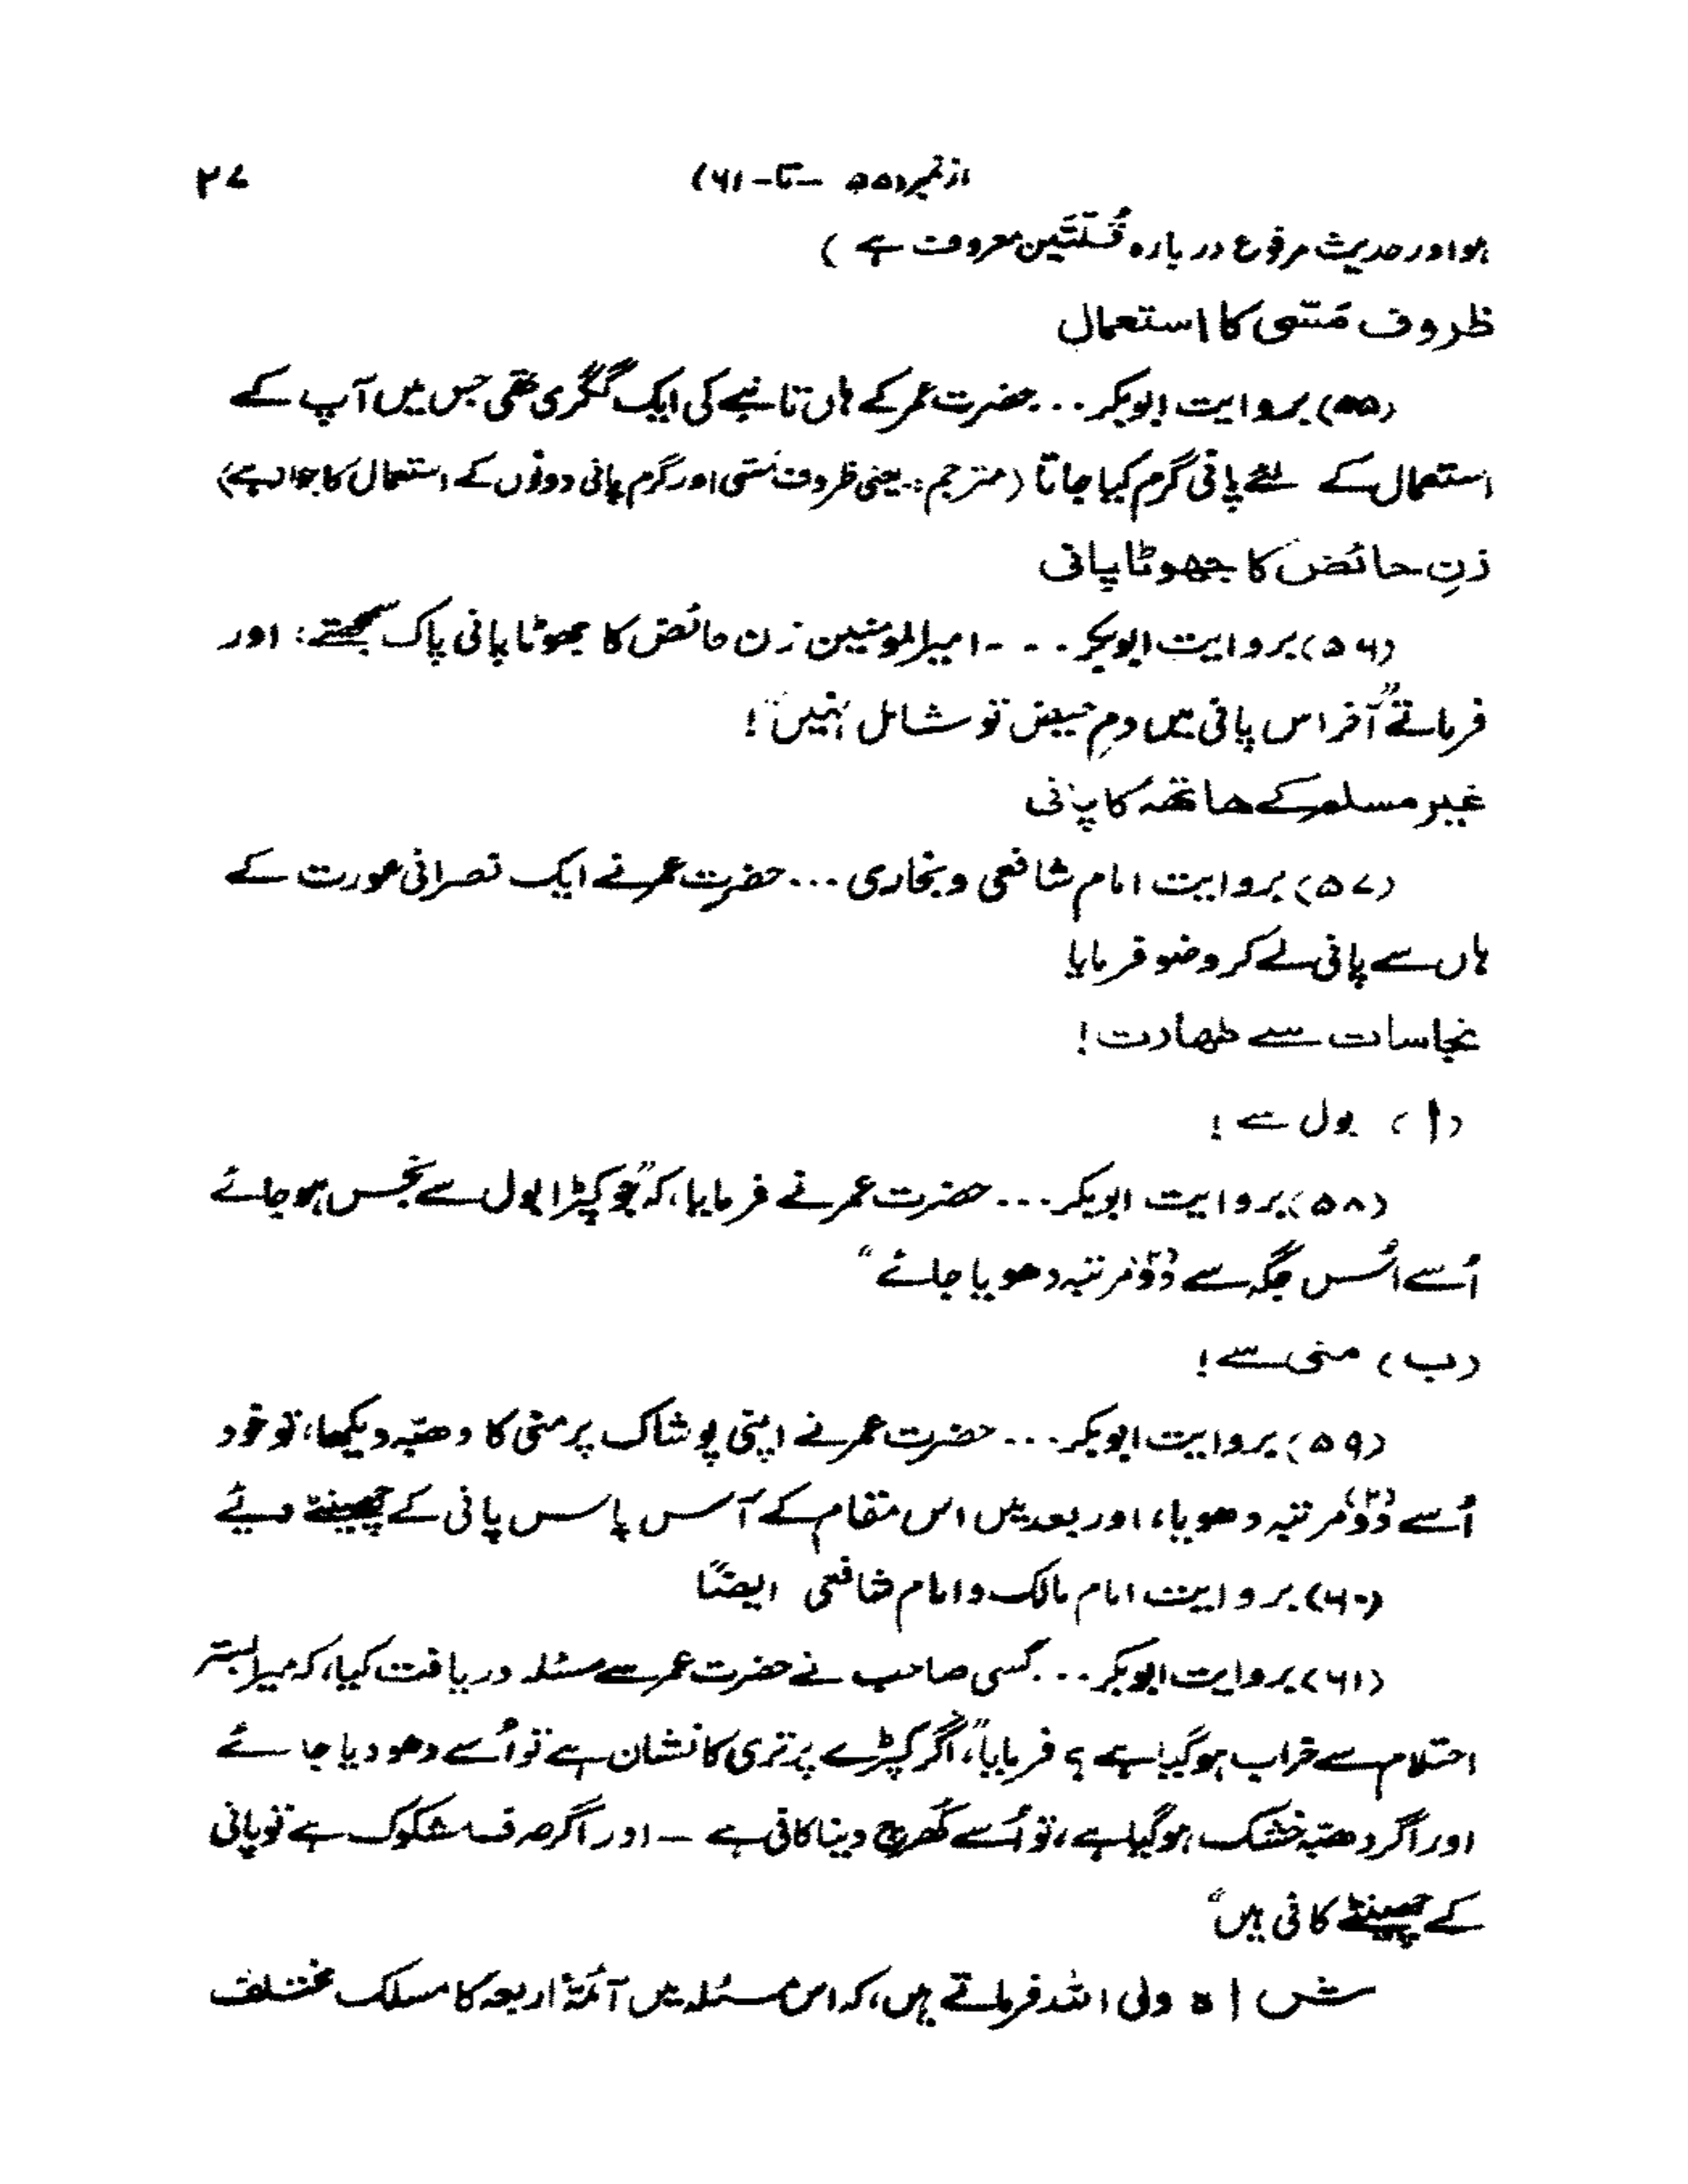 از نمبر (۵۵ -تا- ۶۱) ۲۷
ہو اور حدیث مرفوع دربارہ قُلّتَین معروف ہے )
ظروف مَسّی کا استعمال
(۵۵) بروایت ابوبکر ... حضرت عمر کے ہاں تانبے کی ایک گگری تھی جس میں آپ کے
استعمال کے لئے پانی گرم کیا جاتا (مترجم:۔ یعنی ظروف مسّی اور گرم پانی دونوں کے استعمال کا جواز ہے)
زنِ حائض کا جھوٹا پانی
(۵۶) بروایت ابوبکر ... امیرالمومنین زن حائض کا جھوٹا پانی پاک سمجھتے؛ اور
فرماتے "آخر اس پانی میں دمِ حیض تو شامل نہیں"!
غیر مسلم کے ہاتھ کا پانی
(۵۷) بروایت امام شافعی و بخاری ... حضرت عمر نے ایک نصرانی عورت کے
ہاں سے پانی لے کر وضو فرمایا
نجاسات سے طہارت!
(ا) بول سے!
(۵۸) بروایت ابوبکر ... حضرت عمر نے فرمایا، کہ "جو کپڑا بول سے نجس ہو جائے
اُسے اُس جگہ سے دُو (۲) مرتبہ دھویا جائے"
(ب) منی سے!
(۵۹) بروایت ابوبکر ... حضرت عمر نے اپنی پوشاک پر منی کا دھبّہ دیکھا، تو خود
اُسے دُو (۲) مرتبہ دھویا، اور بعد میں اس مقام کے آس پاس پانی کے چھینٹے دیئے
(۶۰) بروایت امام مالک و امام شافعی ایضًا
(۶۱) بروایت ابوبکر ... کسی صاحب نے حضرت عمر سے مسئلہ دریافت کیا، کہ میرا بستر
احتلام سے خراب ہوگیا ہے ؟ فرمایا، "اگر کپڑے پر تری کا نشان ہے تو اُسے دھو دیا جائے
اور اگر دھبّہ خشک ہوگیا ہے، تو اُسے کُھرچ دینا کافی ہے – اور اگر صرف مشکوک ہے تو پانی
کے چھینٹے کافی ہیں"
شاہ ولی اللہ فرماتے ہیں، کہ اس مسئلہ میں آئمۂ اربعہ کا مسلک مختلف